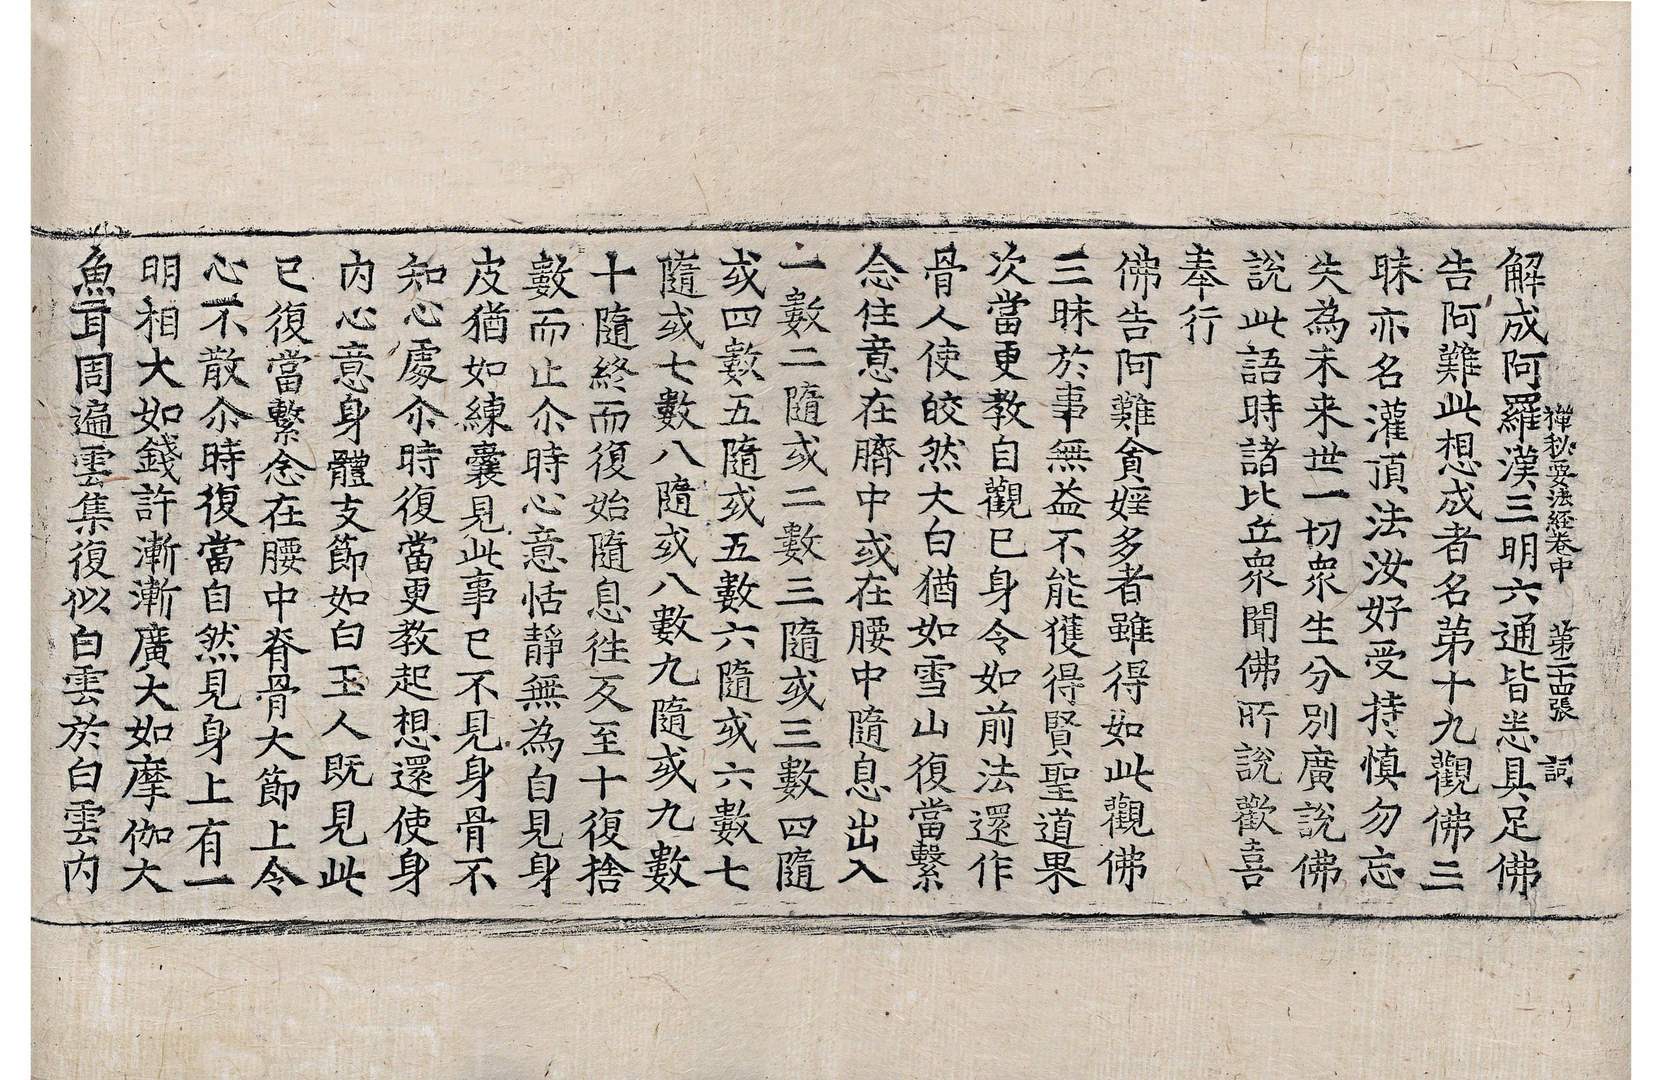 禪秘要法經卷中 第二十四張 詞
解成阿羅漢三明六通皆悉具足佛
告阿難此想成者名第十九觀佛三
昧亦名灌頂法汝好受持慎勿忘
失為未来世一切衆生分別廣說佛
說此語時諸比丘衆聞佛所說歡喜
奉行
佛告阿難貪婬多者雖得如此觀佛
三昧於事無益不能獲得賢聖道果
次當更教自觀已身令如前法還作
骨人使皎然大白猶如雪山復當繫
念住意在臍中或在腰中隨息出入
一數二隨或二數三隨或三數四隨
或四數五隨或五數六隨或六數七
隨或七數八隨或八數九隨或九數
十隨終而復始隨息往反至十復捨
數而止尒時心意恬靜無為自見身
皮猶如練囊見此事已不見身骨不
知心處尒時復當更教起想還使身
內心意身體支節如白玉人既見此
已復當繫念在腰中脊骨大節上令
心不散尒時復當自然見身上有一
明相大如錢許漸漸廣大如摩伽大
魚耳周遍雲集復似白雲於白雲內